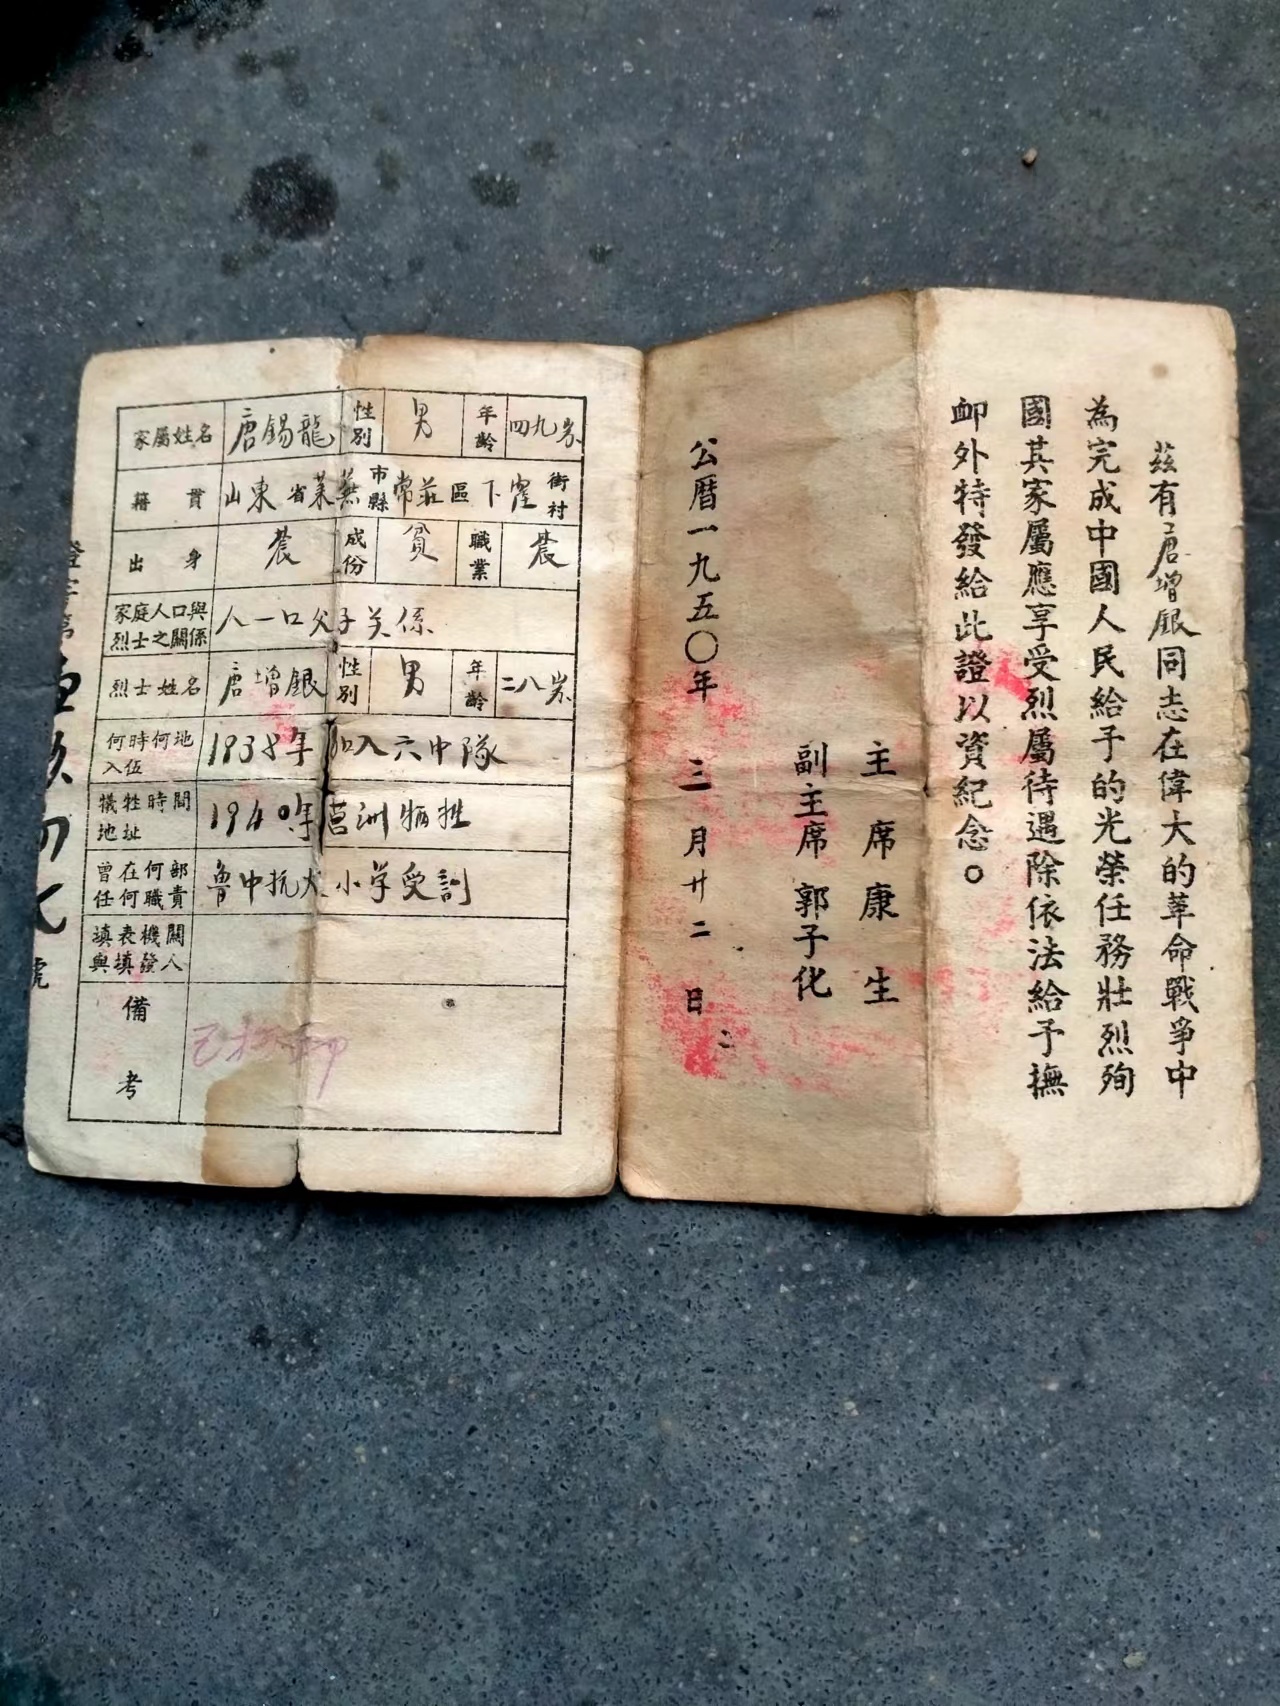 茲有唐增銀同志在偉大的革命戰爭中
為完成中國人民給予的光榮任務壯烈殉
國其家屬應享受烈屬待遇除依法給予撫
卹外特發給此證以資紀念。
主席康生
副主席郭子化
公曆一九五〇年三月廿二日
家屬姓名 唐錫龍 性別 男 年齡 四九岁
籍貫 山東省萊蕪市縣常莊區下窪街村
出身 農 成份 貧 職業 農
家庭人口與烈士之關係 人一口父子关係
烈士姓名 唐增銀 性別 男 年齡 二八岁
何時何地入伍 1938年加入六中隊
犠牲時間地址 1940年莒洲牺牲
曾在何部任何職責 魯中抗大小学受訓
填表機關與填發人
備考
證字第
號